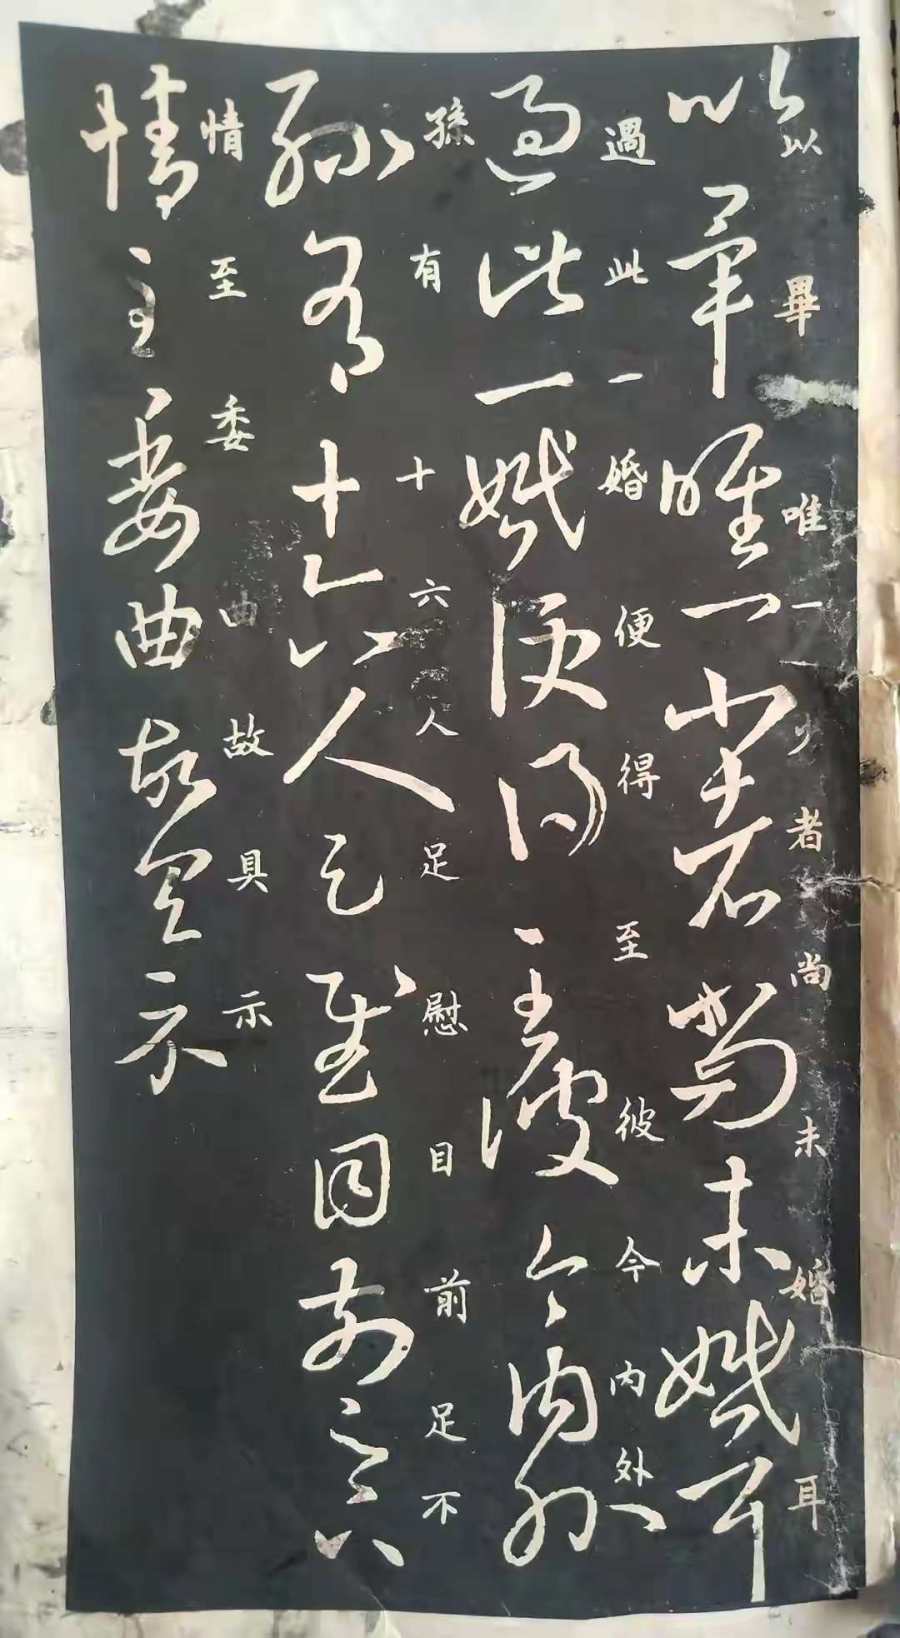 以畢唯一少者尚未婚耳
以畢唯一少者尚未婚耳
過此一婚便得至彼今内外
過此一婚便得至彼今内外
孫有十六人足慰目前足下
孫有十六人足慰目前足不
情至委曲故具示
情至委曲故具示